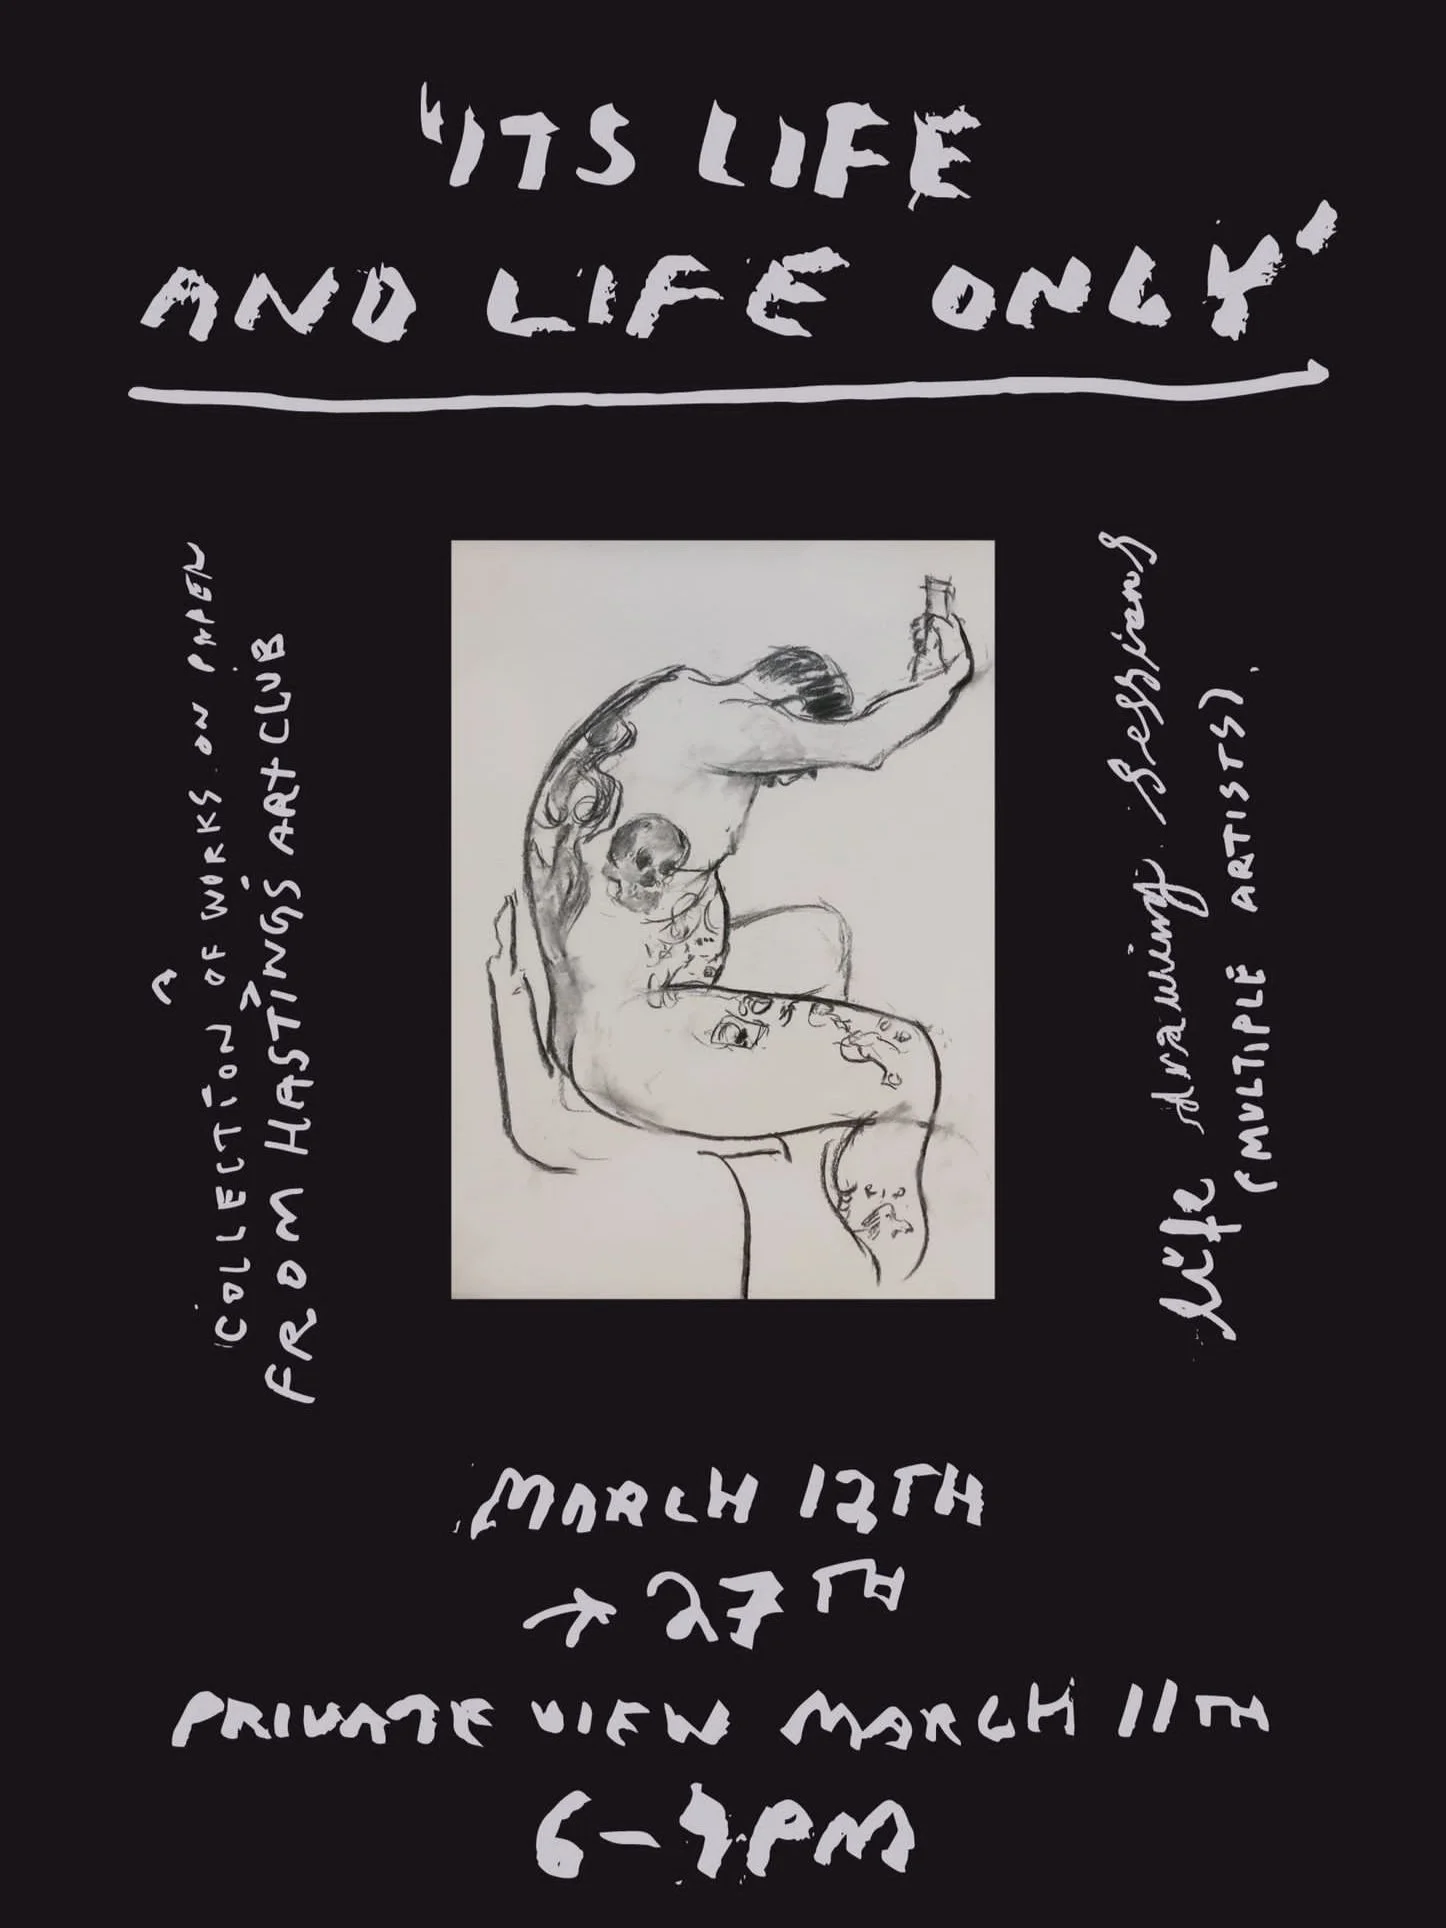 'ITS LIFE
AND LIFE ONLY'
'COLLECTION OF WORKS ON PAPER
FROM HASTINGS ART CLUB
life drawing sessions
(MULTIPLE ARTISTS).
RIP
MARCH 12TH
→ 27TH
PRIVATE VIEW MARCH 11TH
6-9PM